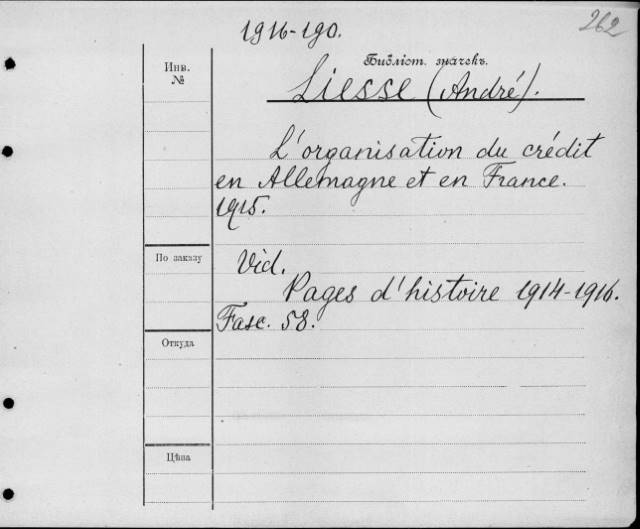 262
1916-190.
Библіот. значекъ.
Инв.
№
Liesse (André).
L'organisation du crédit
en Allemagne et en France.
1915.
По заказу
Vid.
Pages d'histoire 1914-1916.
Fasc. 58.
Откуда
Цѣна